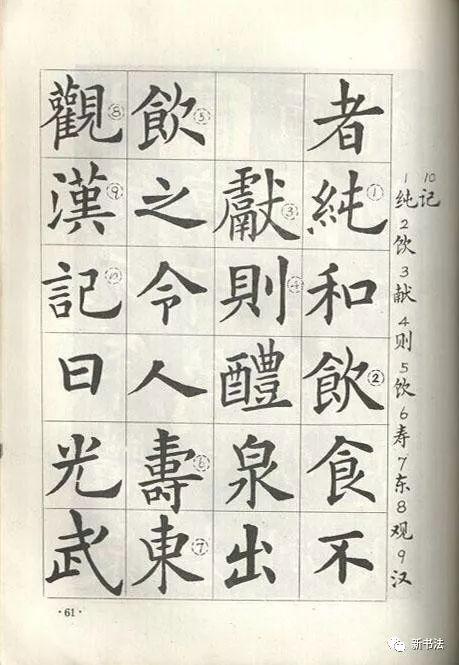 者純①和飲②食不
獻③則④醴泉出
飲⑤之令人壽⑥東⑦
觀⑧漢⑨記⑩曰光武
1纯2饮3献4则5饮6寿7东8观9汉
10记
·61·
新书法